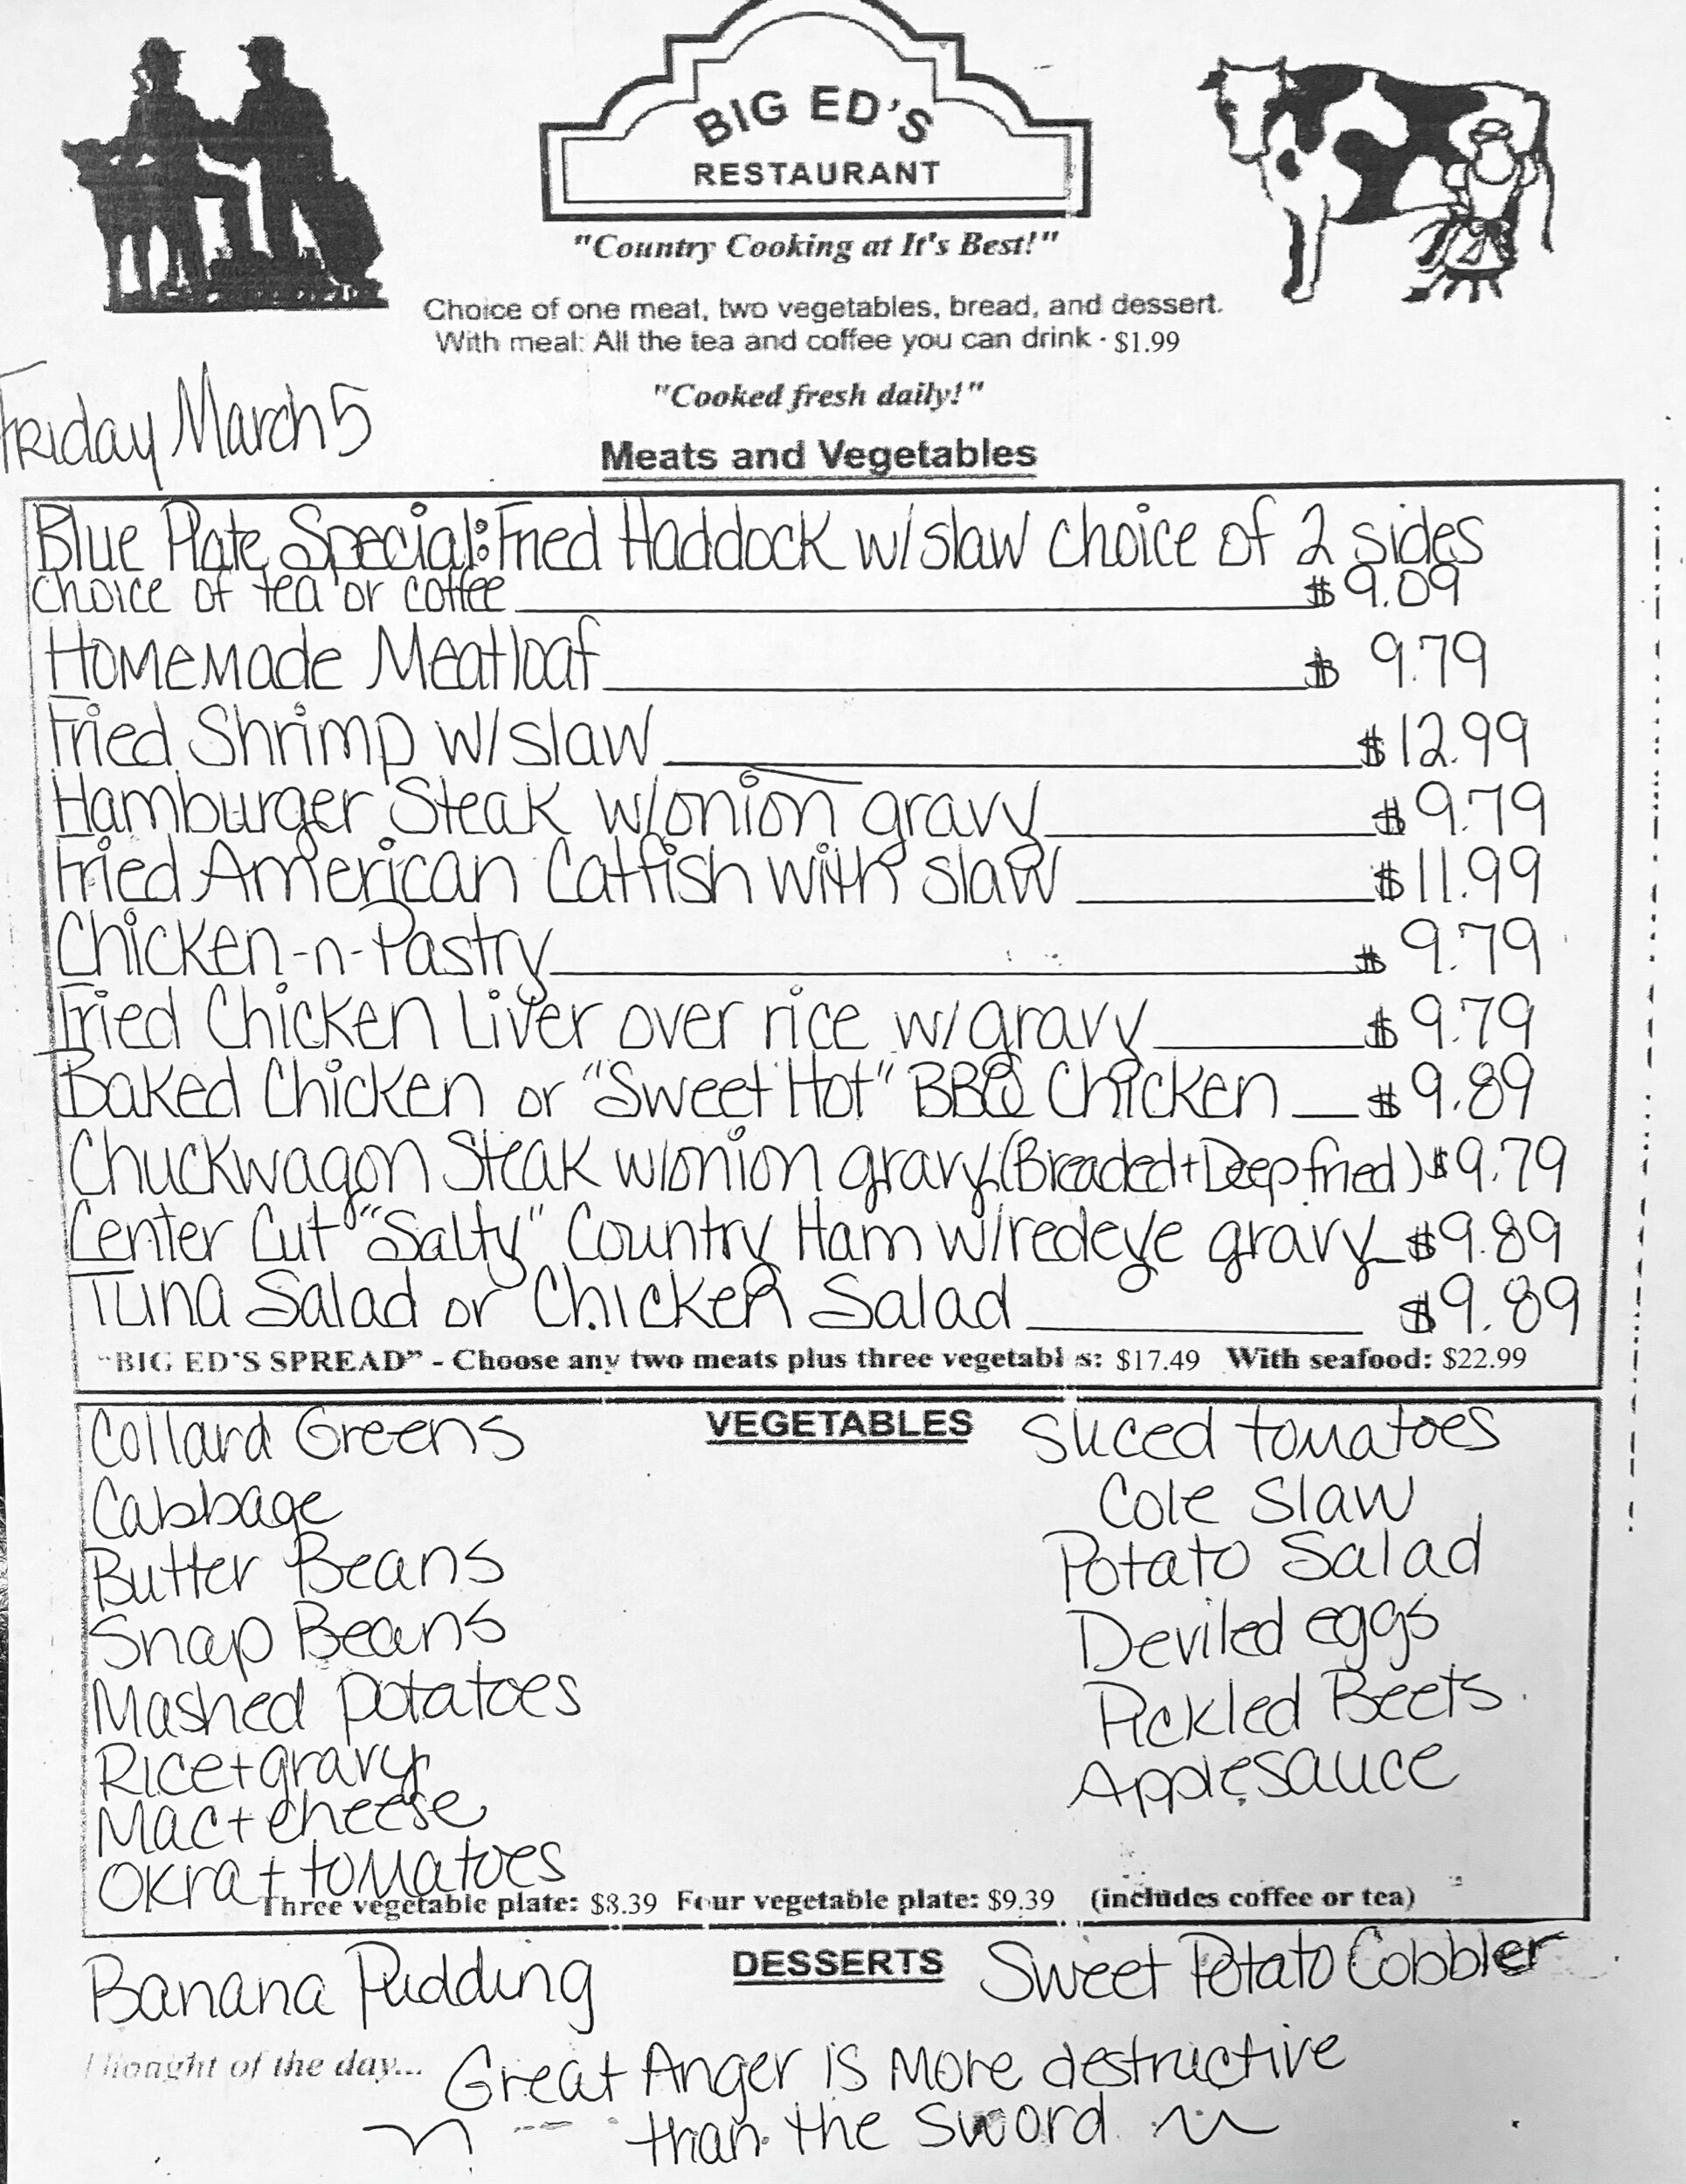 BIG ED'S
RESTAURANT
"Country Cooking at It's Best!"
Choice of one meat, two vegetables, bread, and dessert.
With meal: All the tea and coffee you can drink - $1.99
"Cooked fresh daily!"
Friday March 5
Meats and Vegetables
Blue Plate Special: Fried Haddock w/slaw choice of 2 sides
choice of tea or coffee $9.09
Homemade Meatloaf $ 9.79
Fried Shrimp w/slaw $12.99
Hamburger Steak w/onion gravy $9.79
Fried American Catfish with slaw $11.99
Chicken-n-Pastry $ 9.79
Fried Chicken Liver over rice w/gravy $9.79
Baked Chicken or "Sweet Hot" BBQ Chicken $9.89
Chuckwagon Steak w/onion gravy (Breaded+Deep fried) $9.79
Center Cut "Salty" Country Ham w/redeye gravy $9.89
Tuna Salad or Chicken Salad $9.89
"BIG ED'S SPREAD" - Choose any two meats plus three vegetables: $17.49 With seafood: $22.99
VEGETABLES
Collard Greens
Cabbage
Butter Beans
Snap Beans
Mashed potatoes
Rice+gravy
Mac+cheese
Okra+tomatoes
Sliced tomatoes
Cole Slaw
Potato Salad
Deviled eggs
Pickled Beets
Applesauce
Three vegetable plate: $8.39 Four vegetable plate: $9.39 (includes coffee or tea)
DESSERTS
Banana Pudding
Sweet Potato Cobbler
Thought of the day... Great Anger is more destructive
than the sword